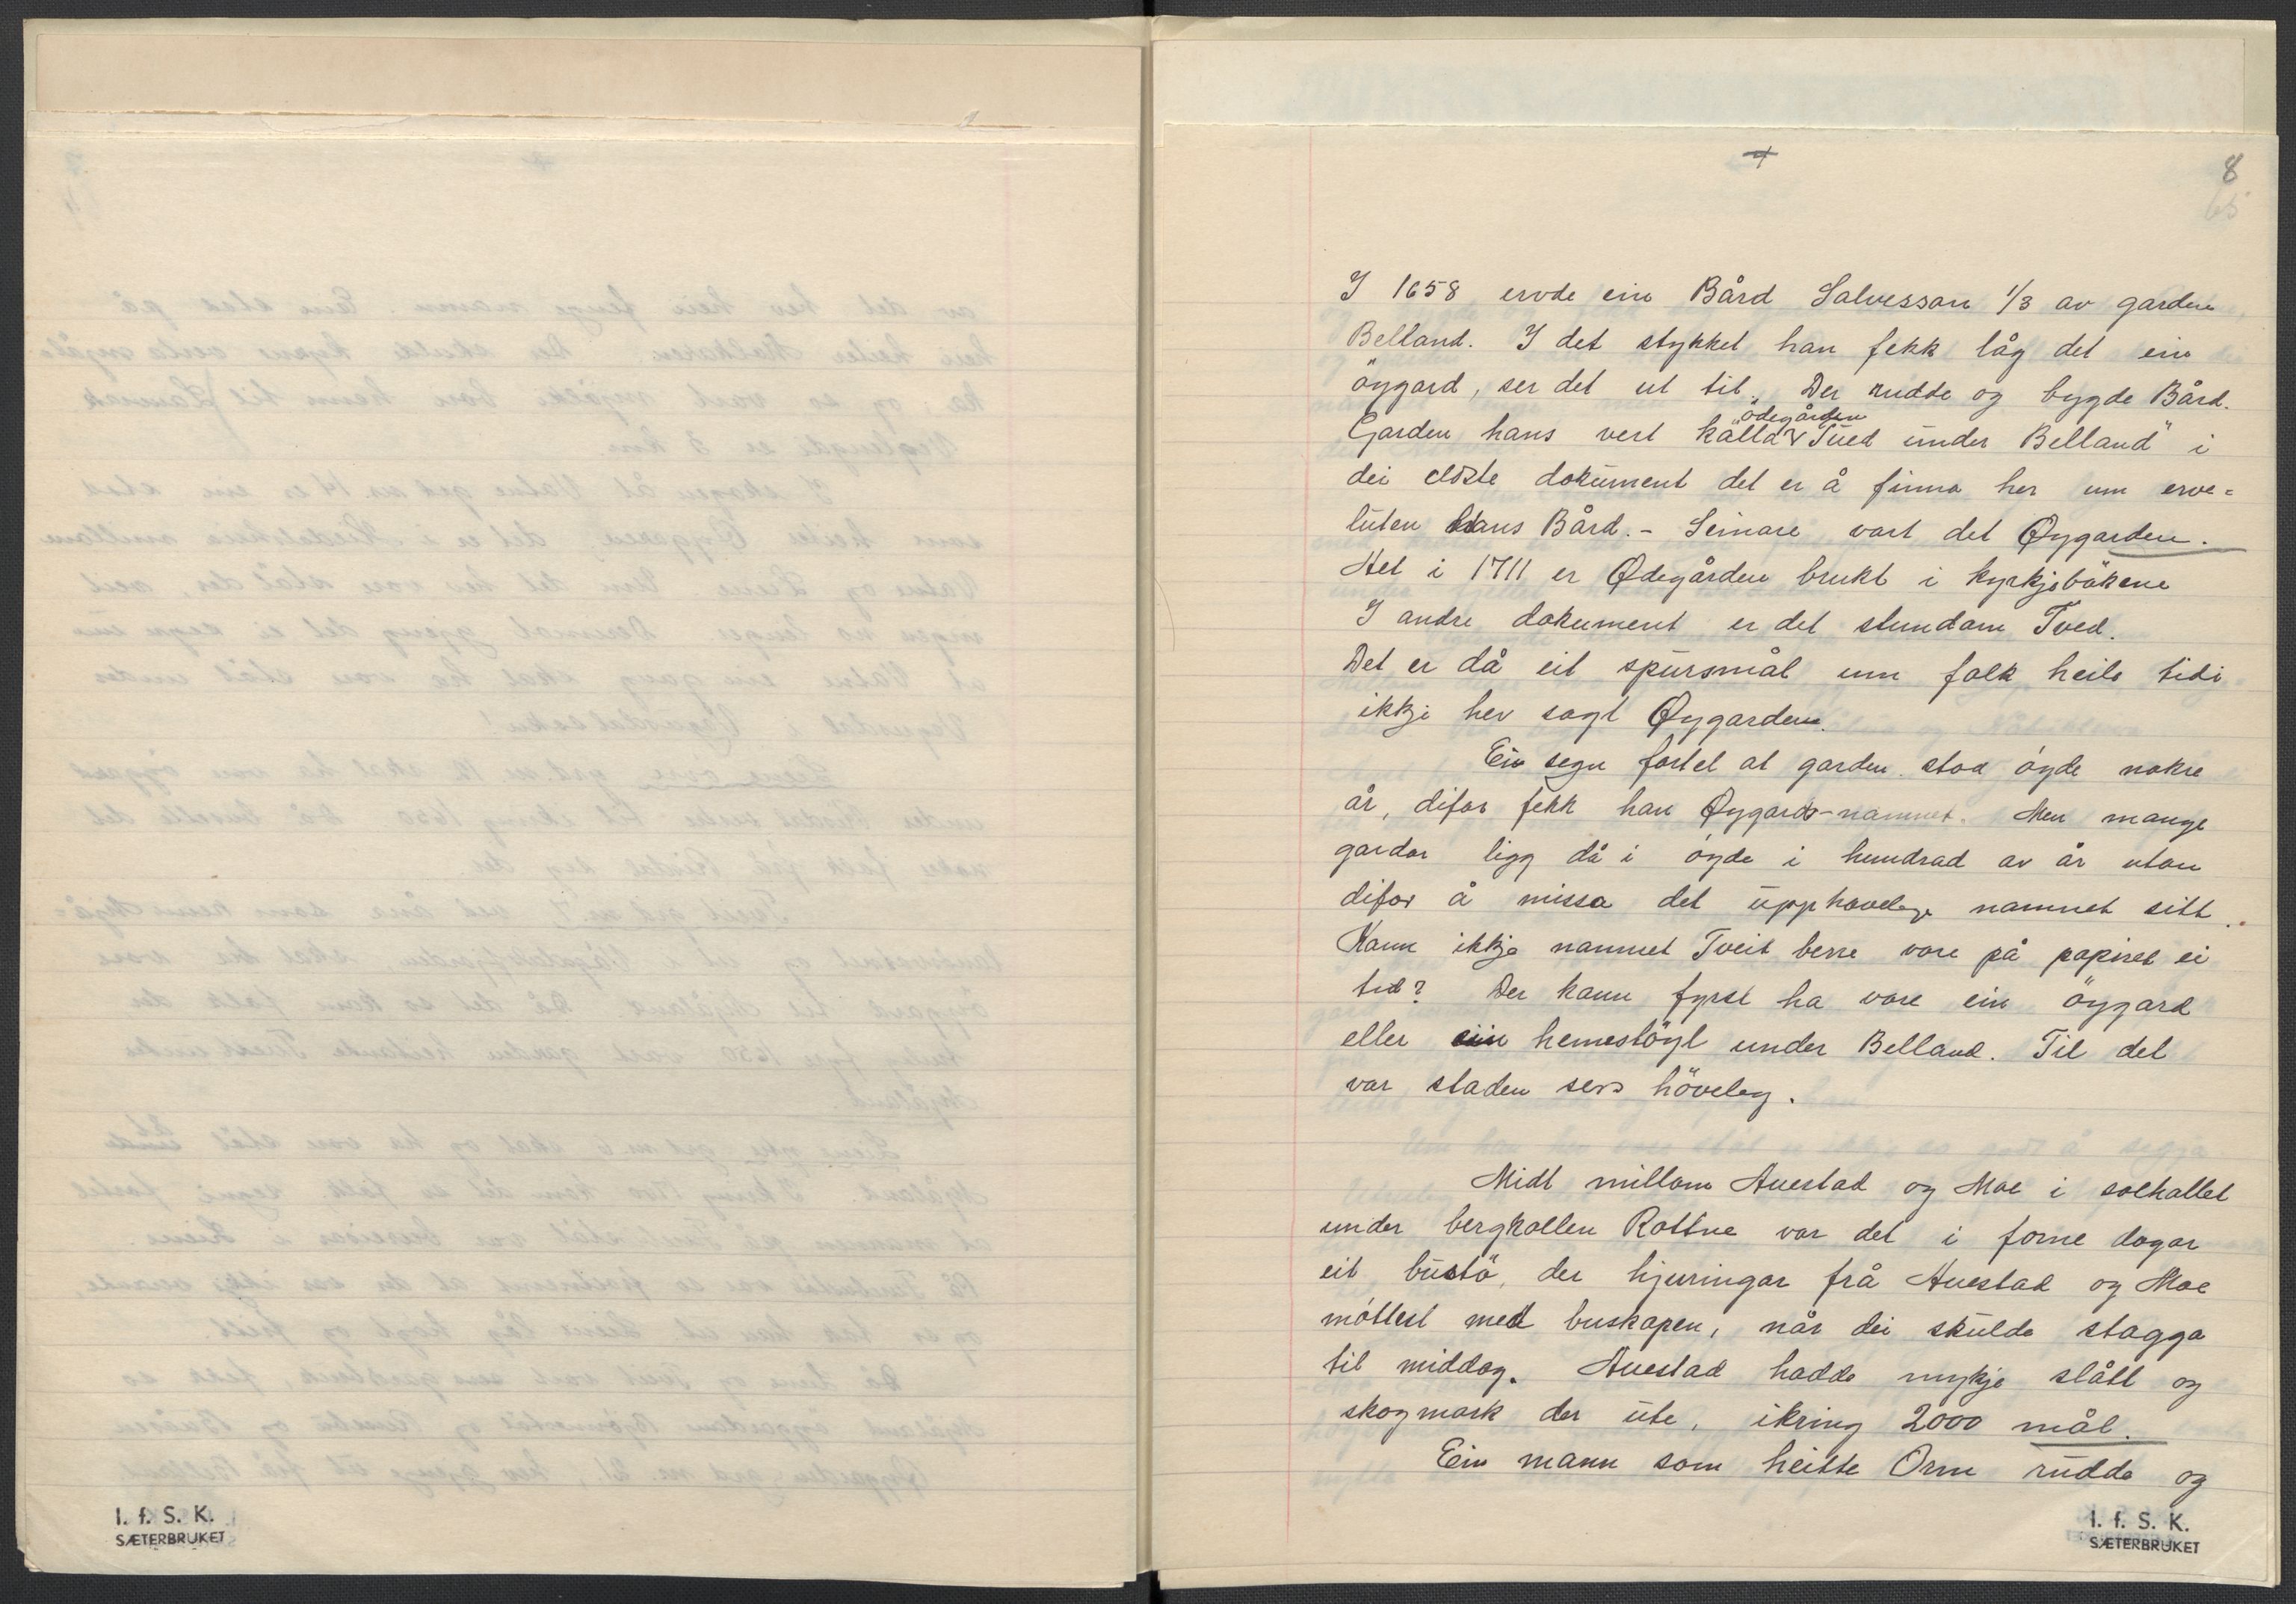 8
65
I 1658 ervde ein Bård Salvesson 1/3 av garden
Belland. I det stykket han fekk låg det ein
öygard, ser det ut til. Der rudde og bygde Bård.
ödegården
Garden hans vert kalla "Tued under Belland" i
dei eldste dokument det er å finna her um erve=
luten hans Bård. - Seinare vart det Øygarden.
Het i 1711 er Ødegården brukt i kyrkjebökene
I andre dokument er det stundom Tved.
Det er då eit spursmål um folk heile tidi
ikkje hev sagt Øygarden.
Ein segn fortel at garden stod öyde nokre
år, difor fekk han Øygards-namnet. Men mange
gardar ligg då i öyde i hundrad av år utan
difor å missa det upphavelege namnet sitt.
Kann ikkje namnet Tveit berre vore på papiret ei
tid? Der kann fyrst ha vore ein öygard
eller ein heimestöyl under Belland. Til det
var staden sers höveleg.
Midt millom Auestad og Moe i solhallet
under bergkollen Rottne var det i forne dagar
eit bustö, der hjuringar frå Auestad og Moe
möttest med buskapen, når dei skulde stagga
til middag. Auestad hadde mykje slått og
skogmark der ute, ikring 2000 mål.
Ein mann som heitte Orm rudde og
I. f. S. K.
SÆTERBRUKET
I. f. S. K.
SÆTERBRUKET